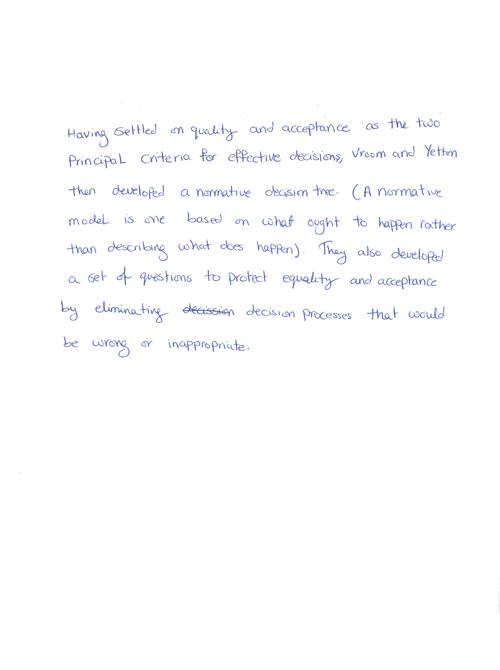 Having Settled on quality and acceptance as the two
Principal Criteria for effective decisions, Vroom and Yetton
then developed a normative decision tree. (A normative
model is one based on what ought to happen rather
than describing what does happen). They also developed
a set of questions to protect equality and acceptance
by eliminating decission decision processes that would
be wrong or inappropriate.